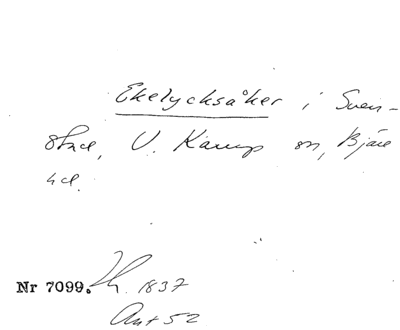 Ekelycksåker i Sven-
stad, V. Karup sn, Bjäre
hd.
Nr 7099. Lh. 1837
Ant 52